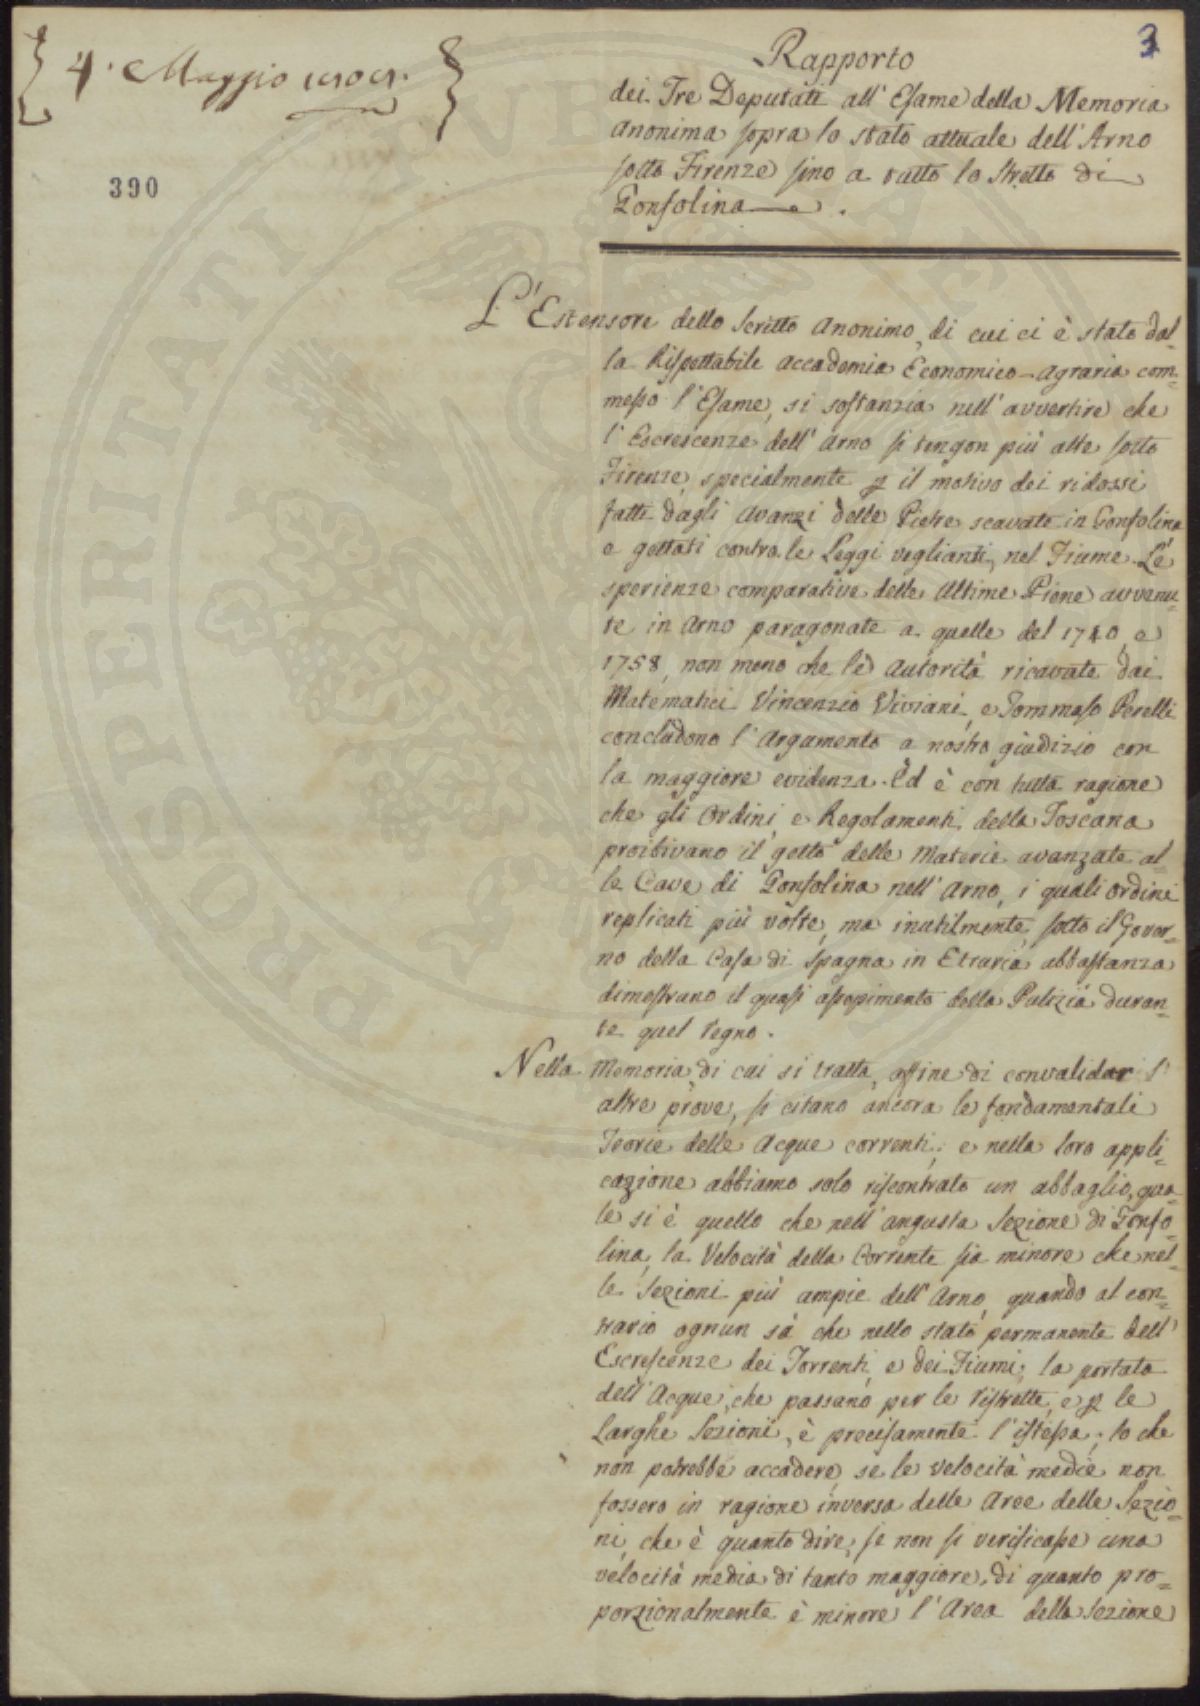 4. Maggio
390
3
Rapporto
dei Tre Deputati all' Esame della Memoria
Anonima sopra lo stato attuale dell' Arno
sotto Firenze sino a tutto lo Stretto di
Gonfolina.
L' Estensore dello Scritto Anonimo, di cui ci è stato dal=
la Rispettabile Accademia Economico-Agraria com=
messo l' Esame, si sostanzia nell' avvertire che
l' Escrescenze dell' Arno si tengon più alte sotto
Firenze, specialmente p il motivo dei ridossi
fatti dagli Avanzi delle Pietre scavate in Gonfolina
e gettati contro le Leggi veglianti, nel Fiume. L' e
sperienze comparative delle Ultime Piene avvenu=
te in Arno paragonate a quelle del 1740, e
1758, non meno che le autorità ricavate dai
Matematici Vincenzio Viviani, e Tommaso Perelli
concludono l' Argumento a nostro giudizio con
la maggiore evidenza. Ed è con tutta ragione
che gli Ordini, e Regolamenti della Toscana
proibivano il getto delle Materie avanzate al=
le Cave di Gonfolina nell' Arno, i quali ordini
replicati più volte, ma inutilmente, sotto il Gover=
no della Casa di Spagna in Etruria abbastanza
dimostrano il quasi assopimento della Pulizia duran=
te quel regno.
Nella Memoria, di cui si tratta, affine di convalidar l'
altre prove, si citano ancora le fondamentali
Teorie delle Acque correnti; e nella loro appli=
cazione abbiamo solo riscontrato un abbaglio, qua=
le si è quello che nell' angusta Sezione di Gonfo=
lina, la Velocità della Corrente sia minore che nel=
le Sezioni più ampie dell' Arno, quando al con=
trario ognun sà che nello stato permanente dell'
Escrescenze dei Torrenti, e dei Fiumi, la portata
dell' Acque, che passano per le ristrette, e p le
Larghe Sezioni, è precisamente l' istessa; lo che
non potrebbe accadere, se le velocità medie non
fossero in ragione inversa delle Aree delle Sezio=
ni, che è quanto dire, se non si verificasse una
velocità media di tanto maggiore, di quanto pro=
porzionalmente è minore l' Area della Sezione